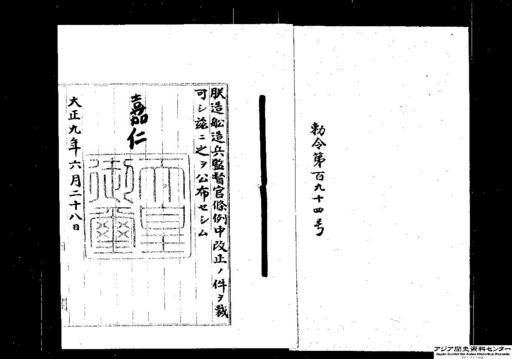 勅令第百九十四号
朕造船造兵監督官條例中改正ノ件ヲ裁
可シ茲ニ之ヲ公布セシム
嘉仁
天皇
御璽
大正九年六月二十八日
アジア歴史資料センター
Japan Center for Asian Historical Records